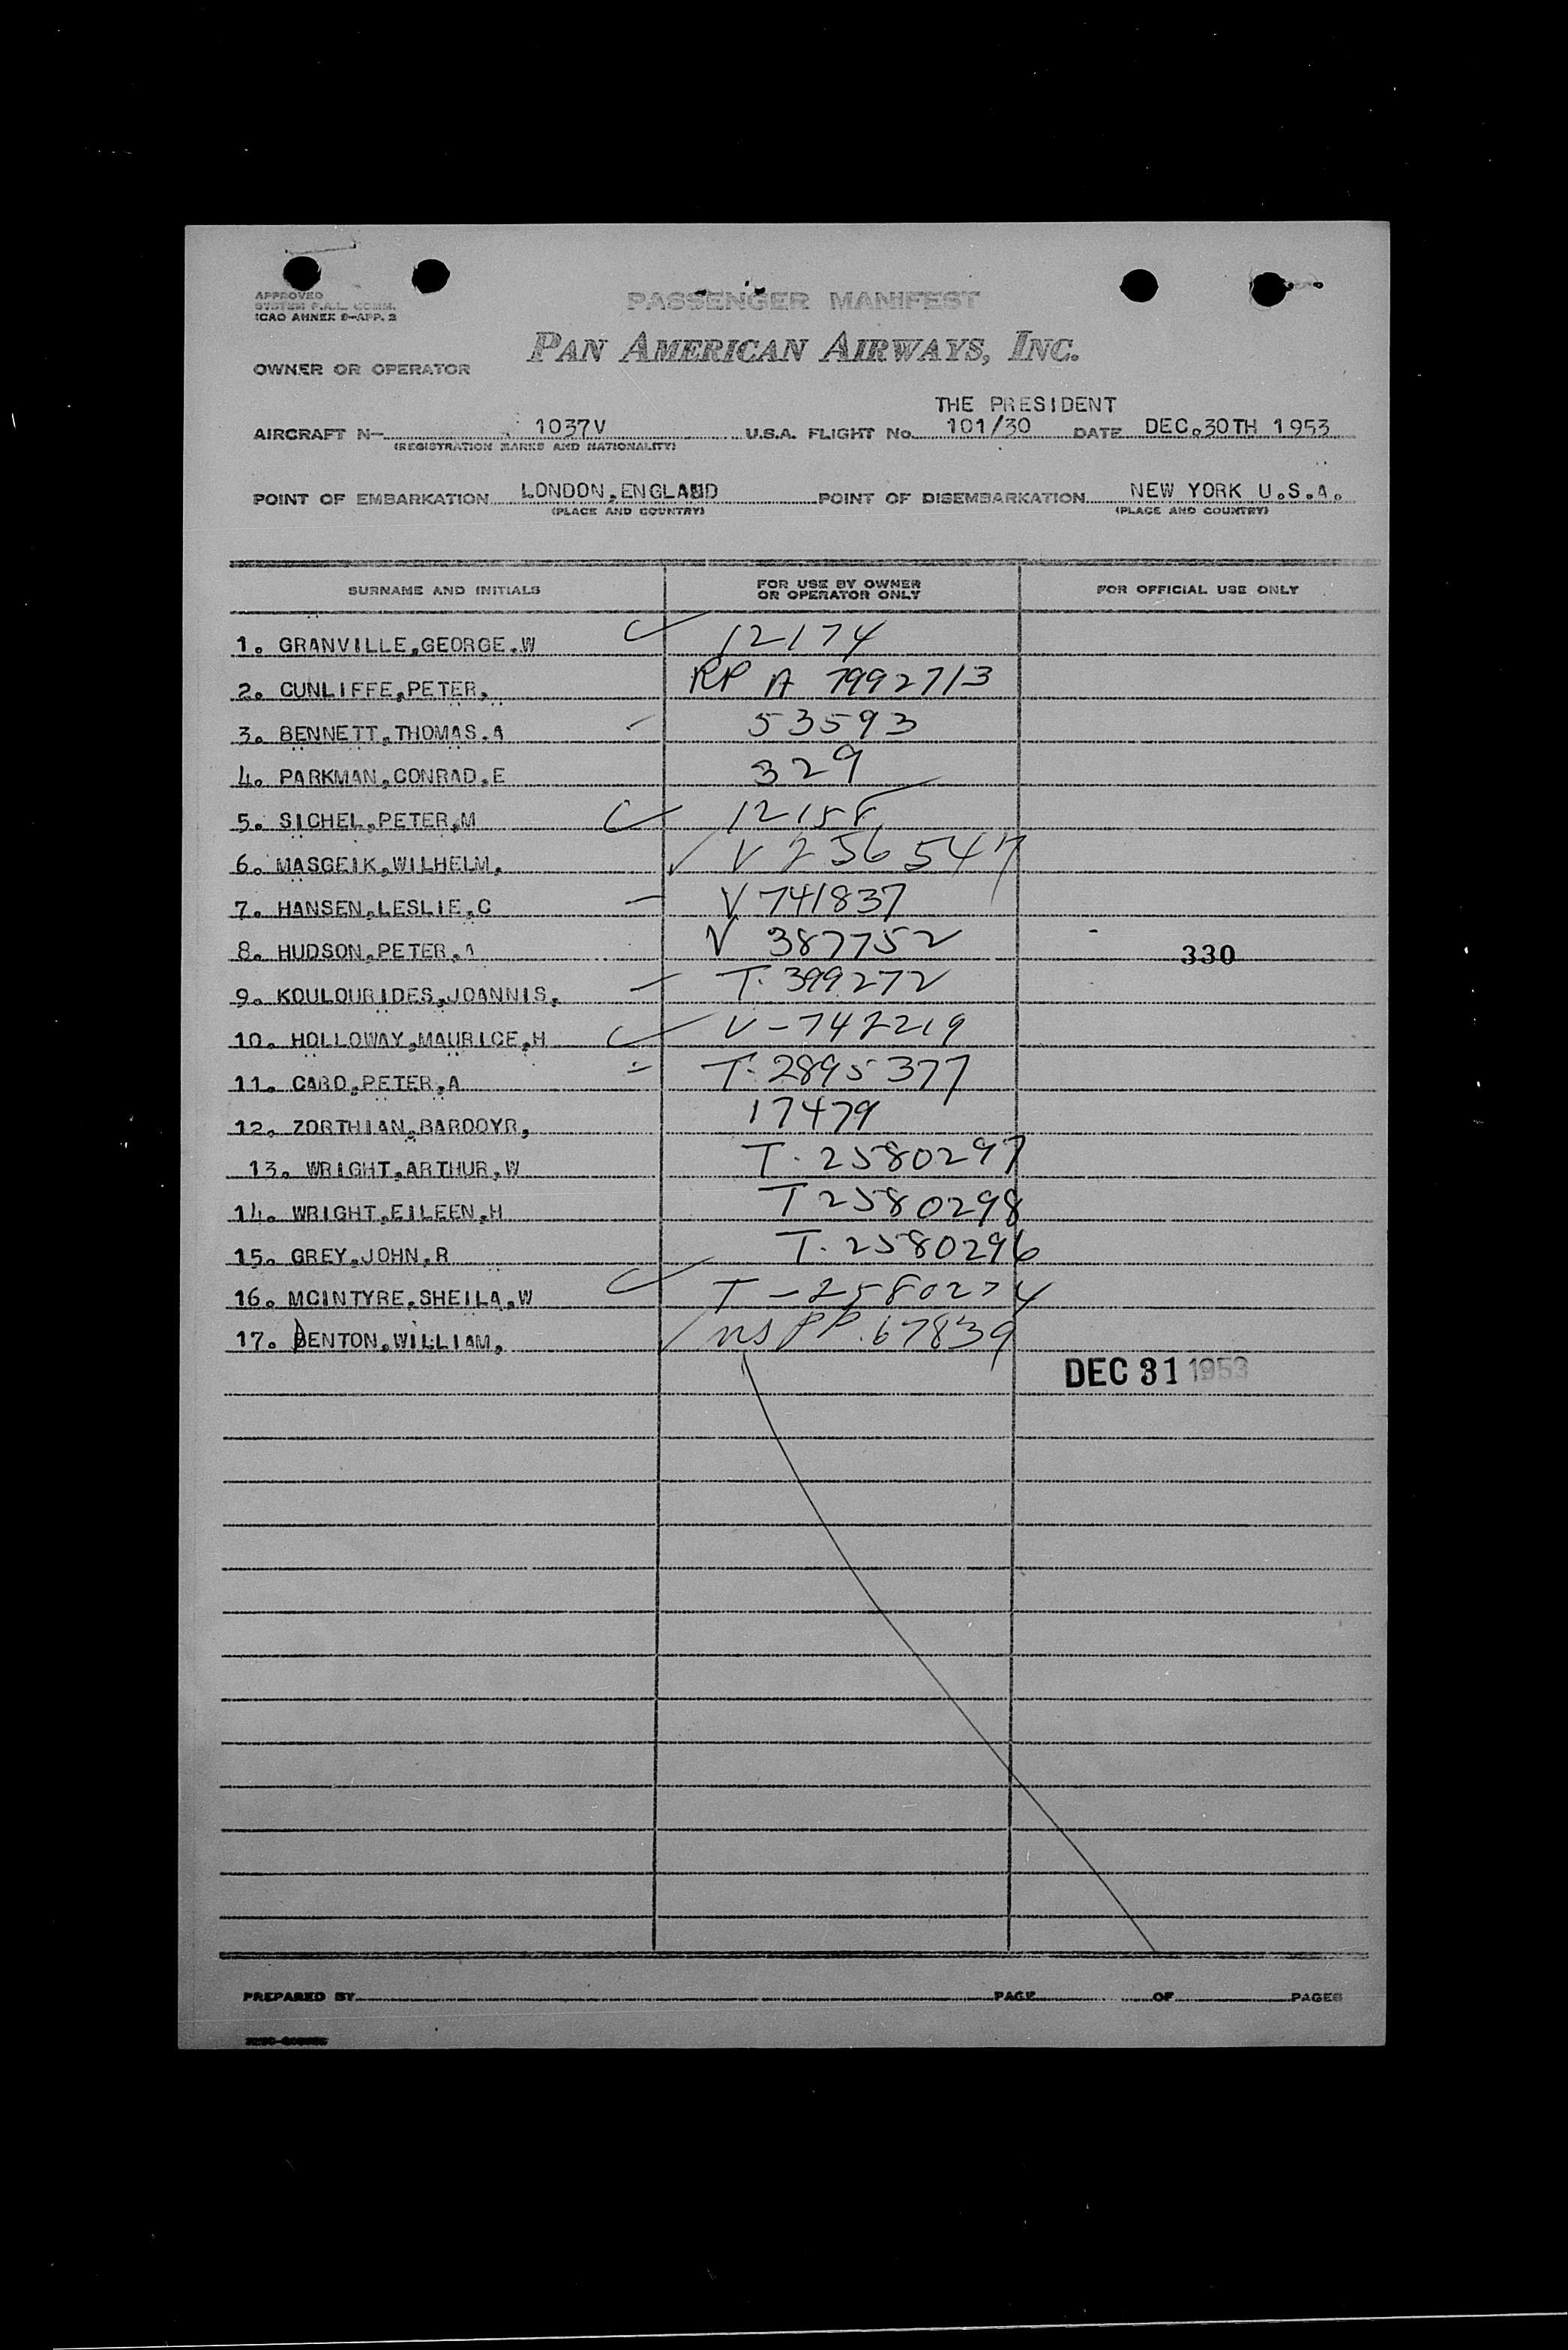 APPROVED
SYSTEM P.A.L. COMM.
ICAO ANNEX 9-APP. 2
PASSENGER MANIFEST
PAN AMERICAN AIRWAYS, INC.
OWNER OR OPERATOR
THE PRESIDENT
AIRCRAFT N- 1037V U.S.A. FLIGHT No. 101/30 DATE DEC.30TH 1953
(REGISTRATION MARKS AND NATIONALITY)
POINT OF EMBARKATION LONDON,ENGLAND POINT OF DISEMBARKATION NEW YORK U.S.A.
(PLACE AND COUNTRY) (PLACE AND COUNTRY)
SURNAME AND INITIALS FOR USE BY OWNER OR OPERATOR ONLY FOR OFFICIAL USE ONLY
1. GRANVILLE,GEORGE.W 12174
2. CUNLIFFE,PETER. RP A 7992713
3. BENNETT,THOMAS.A 53593
4. PARKMAN,CONRAD.E 329
5. SICHEL,PETER,M 12158
6. MASGEIK,WILHELM. V 256547
7. HANSEN,LESLIE.C V 741837
8. HUDSON,PETER.A V 387752 330
9. KOULOURIDES,JOANNIS. T. 399272
10. HOLLOWAY,MAURICE,H V-742219
11. CARO,PETER,A T. 2895377
12. ZORTHIAN,BARDOYR, 17479
13. WRIGHT,ARTHUR,W T. 2580297
14. WRIGHT,EILEEN,H T 2580298
15. GREY,JOHN,R T. 2580296
16. MCINTYRE,SHEILA.W T-2580274
17. BENTON,WILLIAM, PP. 67839
DEC 31 1953
PREPARED BY PAGE OF PAGES